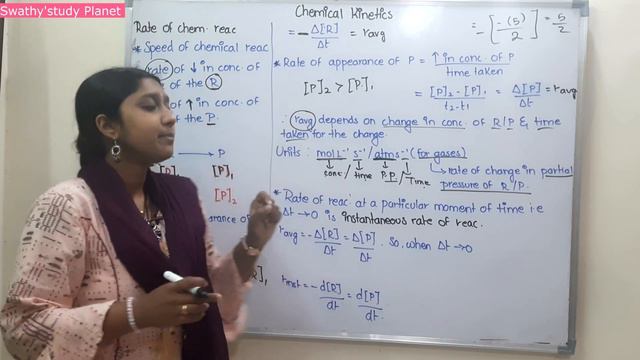 Swathy'study Planet
Chemical Kinetics
Rate of chem. reac
* Speed of chemical reac
rate of ↓ in conc. of
of the R
of ↑ in conc. of
of the P.
→ P
[P]₁
[P]₂
= -Δ[R]/Δt = ravg
= -[-(5)/2] = 5/2
* Rate of appearance of P = ↑ in conc. of P / time taken
[P]₂ > [P]₁
= [P]₂ - [P]₁ / t₂-t₁ = Δ[P]/Δt = ravg
∴ ravg depends on change in conc. of R/P & time
taken for the change.
Units : mol L⁻¹ s⁻¹ / atm s⁻¹ (for gases)
conc / time P.P / Time
rate of change in partial
pressure of R/P.
* Rate of reac. at a particular moment of time i.e
Δt → 0 is instantaneous rate of reac.
ravg = -Δ[R]/Δt = Δ[P]/Δt. So, when Δt → 0
rinst = -d[R]/dt = d[P]/dt.